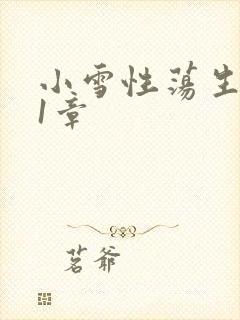 小雪性荡生
1章
茗爷